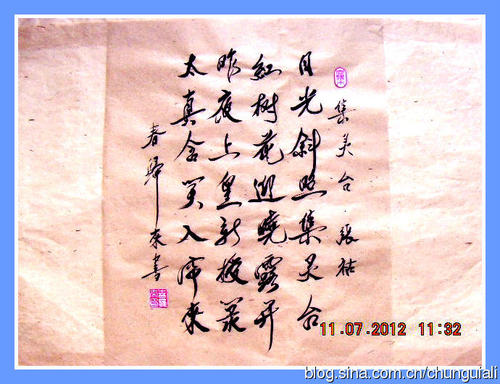 集灵台 張祜
日光斜照集灵台
紅樹花迎曉露开
昨夜上皇新授箓
太真含笑入帘来
春歸来書
11.07.2012 11:32
blog.sina.com.cn/chunguiali